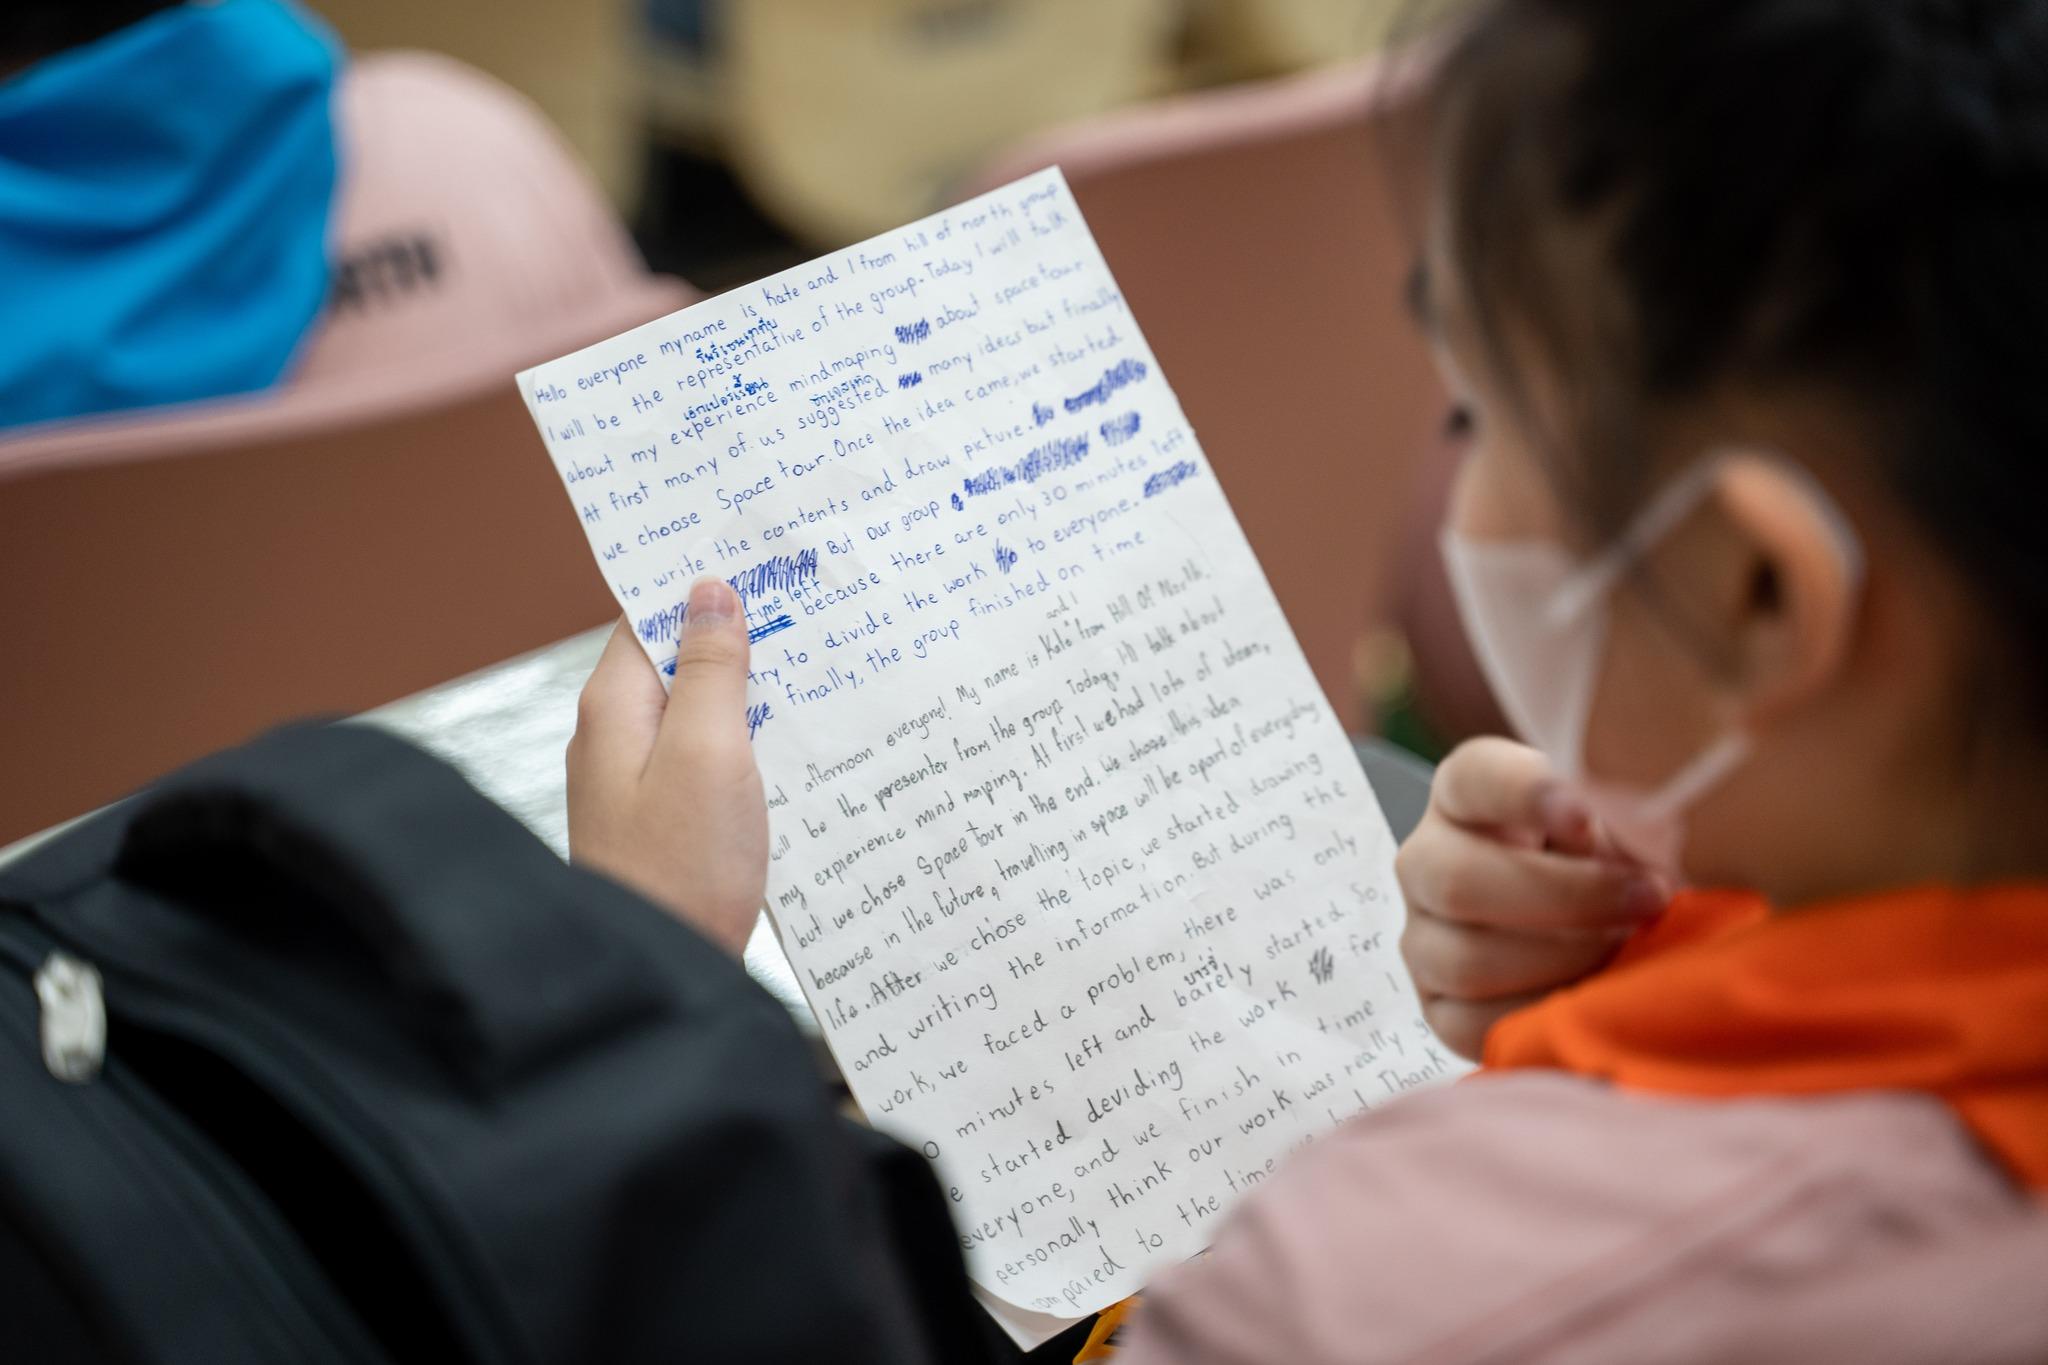 Hello everyone myname is Kate and I from hill of north group
รีพรีเซนเททีบ
I will be the representative of the group. Today I will talk
เอ็กเปอร์เรี้ยน
about my experience mindmaping about space tour
At first many of us suggested many ideas but finally
we choose Space tour. Once the idea came, we started
to write the contents and draw picture.
But our group
time left because there are only 30 minutes left
try to divide the work to everyone.
finally, the group finished on time
and I
afternoon everyone! My name is Kate from Hill Of North.
will be the presenter from the group Today, I'll talk about
my expierience mind maping. At first we had lots of idean,
but we chose Space Tour in the end. We chose this idea
because in the future, travelling in space will be apart of everyday
life. After we chose the topic, we started drawing
and writing the information. But during the
work, we faced a problem, there was only
บารี่
0 minutes left and barely started. So,
started deviding the work for
everyone, and we finish in time I
personally think our work was really
compared to the time we had. Thank